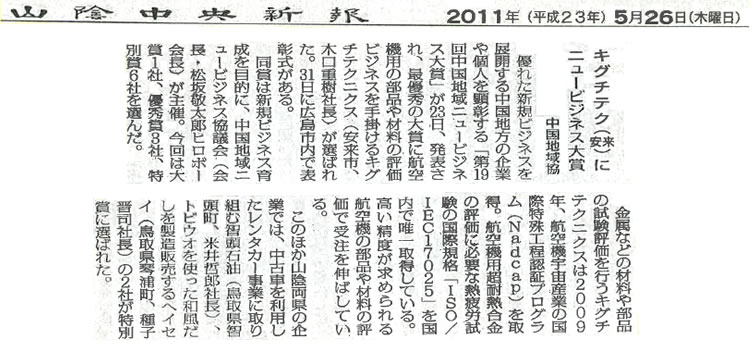 山陰中央新報
2011年(平成23年)5月26日(木曜日)
キグチテク(安来)に
ニュービジネス大賞
中国地域協
優れた新規ビジネスを
展開する中国地方の企業
や個人を顕彰する「第19
回中国地域ニュービジネ
ス大賞」が23日、発表さ
れ、最優秀の大賞に航空
機用の部品や材料の評価
ビジネスを手掛けるキグ
チテクニクス(安来市、
木口重樹社長)が選ばれ
た。31日に広島市内で表
彰式がある。
同賞は新規ビジネス育
成を目的に、中国地域ニ
ュービジネス協議会(会
長・松坂敬太郎ヒロボー
会長)が主催。今回は大
賞1社、優秀賞3社、特
別賞6社を選んだ。
金属などの材料や部品
の試験評価を行うキグチ
テクニクスは2009
年、航空機宇宙産業の国
際特殊工程認証プログラ
ム(Nadcap)を取
得。航空機用超耐熱合金
の評価に必要な熱疲労試
験の国際規格「ISO/
IEC17025」を国
内で唯一取得している。
高い精度が求められる
航空機の部品や材料の評
価で受注を伸ばしてい
る。
このほか山陰両県の企
業では、中古車を利用し
たレンタカー事業に取り
組む智頭石油(鳥取県智
頭町、米井哲郎社長)、
トビウオを使った和風だ
しを製造販売するヘイセ
イ(鳥取県琴浦町、種子
晋司社長)の2社が特別
賞に選ばれた。